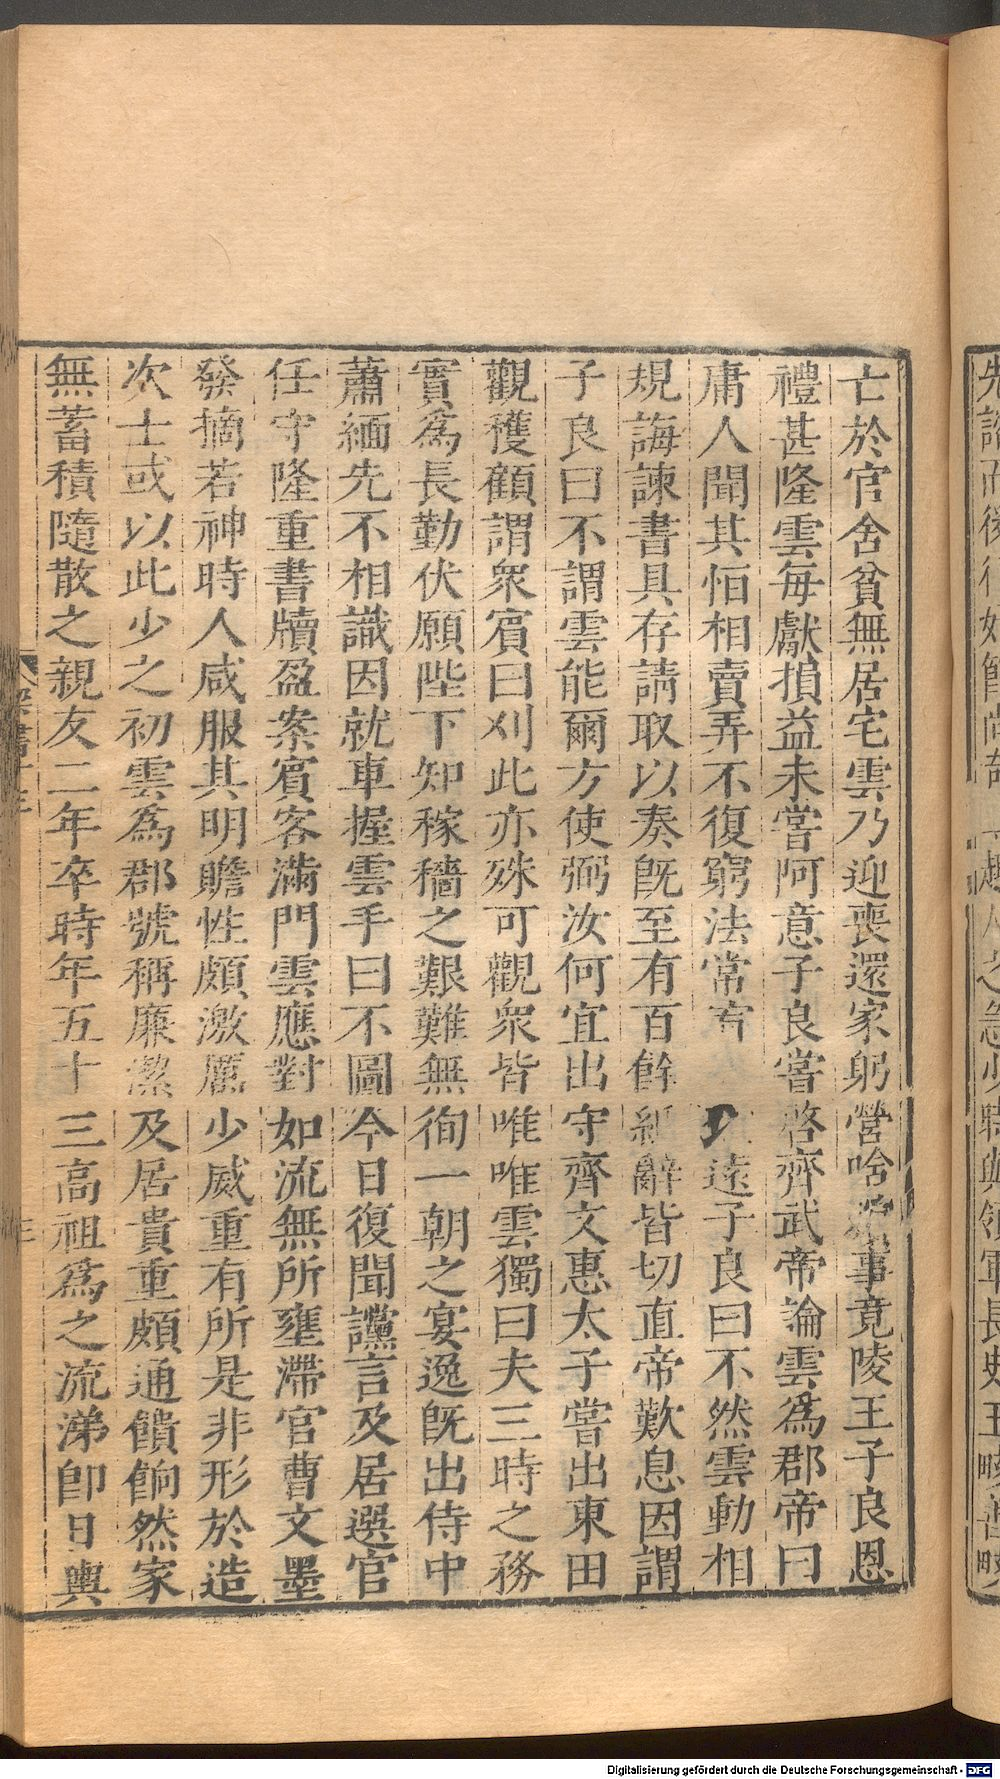 亡於官舍貧無居宅雲乃迎喪還家躬營唅殯事竟陵王子良恩
禮甚隆雲每獻損益未嘗阿意子良嘗啓齊武帝論雲爲郡帝曰
庸人聞其恒相賣弄不復窮法當宥遠子良曰不然雲動相
規誨諫書具存請取以奏旣至有百餘紙辭皆切直帝歎息因謂
子良曰不謂雲能爾方使弼汝何宜出守齊文惠太子嘗出東田
觀穫顧謂衆賓曰刈此亦殊可觀衆皆唯唯雲獨曰夫三時之務
實爲長勤伏願陛下知稼穡之艱難無徇一朝之宴逸旣出侍中
蕭緬先不相識因就車握雲手曰不圖今日復聞讜言及居選官
任守隆重書牘盈案賓客滿門雲應對如流無所壅滯官曹文墨
發摘若神時人咸服其明贍性頗激厲少威重有所是非形於造
次士或以此少之初雲爲郡號稱廉潔及居貴重頗通饋餉然家
無蓄積隨散之親友二年卒時年五十三高祖爲之流涕卽日輿
三
Digitalisierung gefördert durch die Deutsche Forschungsgemeinschaft - DFG